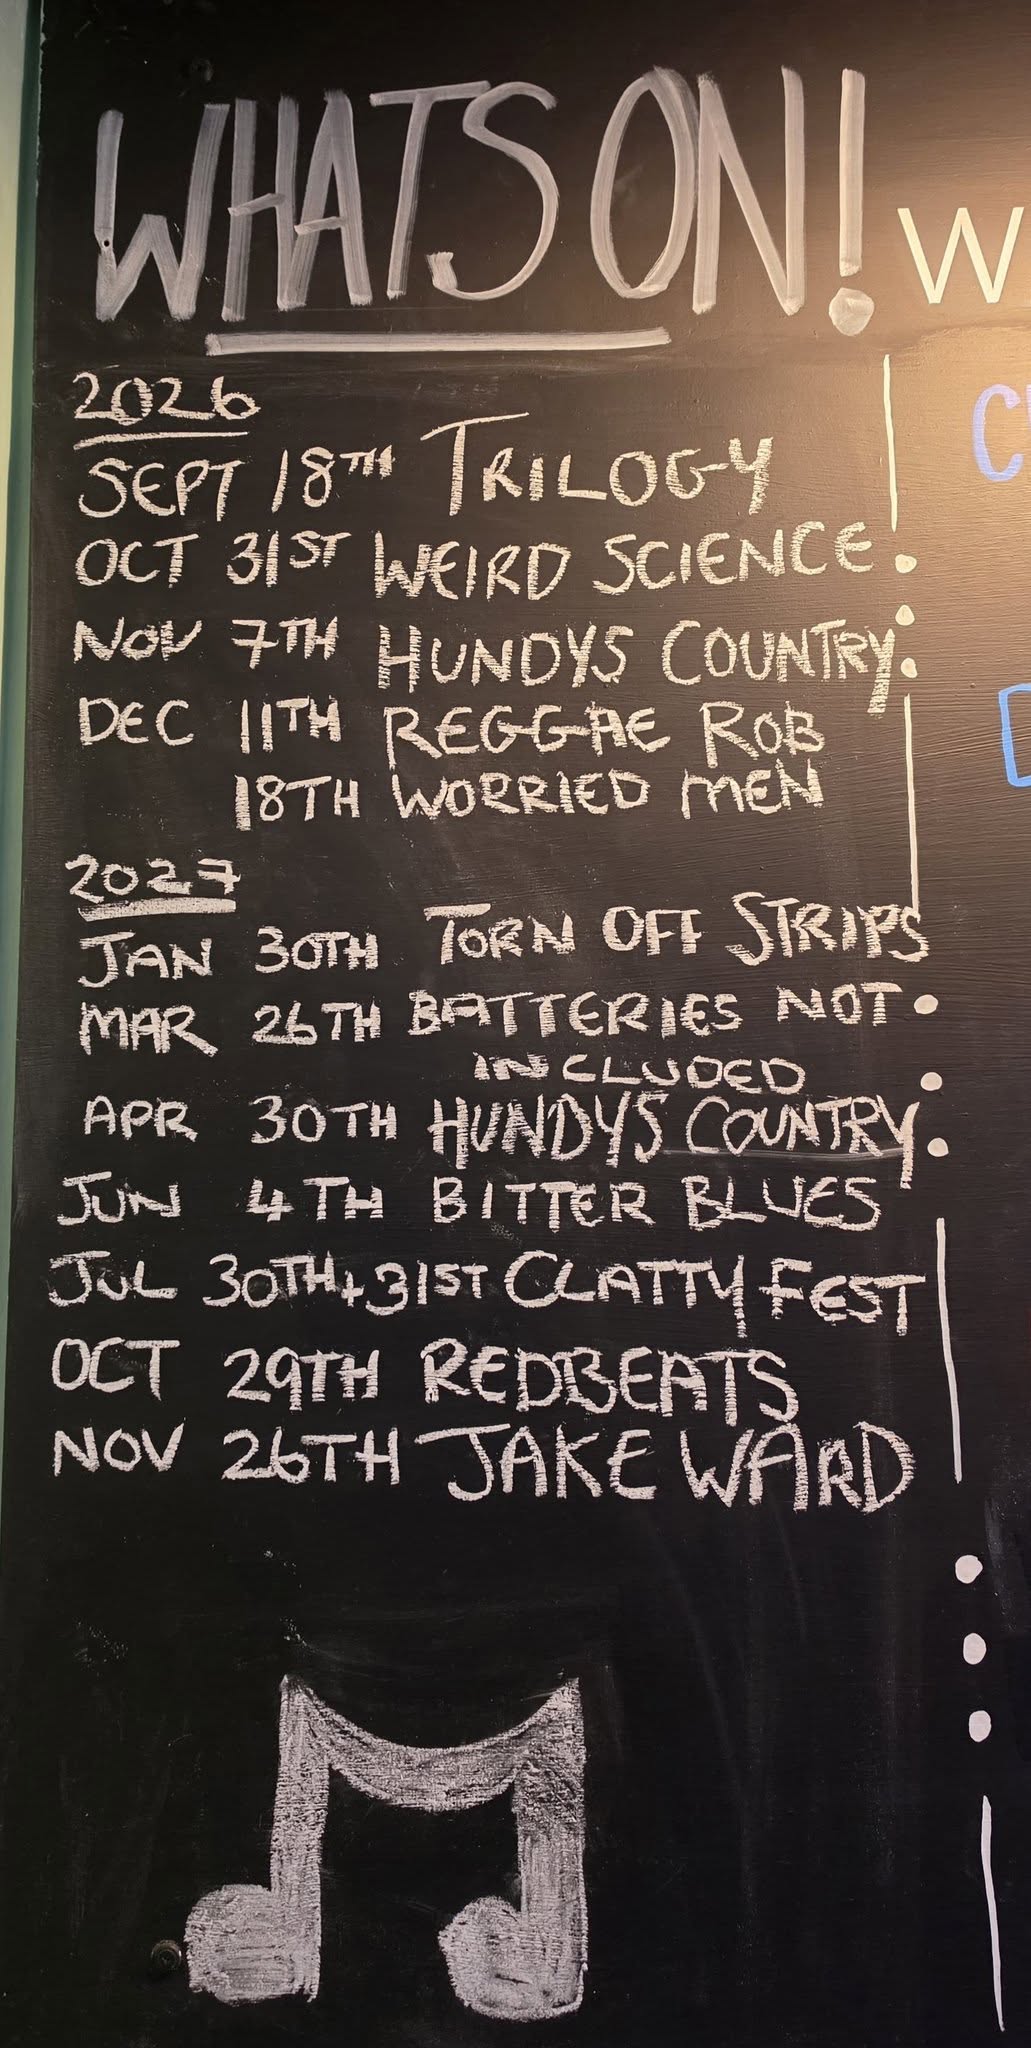 WHATS ON!
W
2026
SEPT 18TH TRILOGY
OCT 31ST WEIRD SCIENCE
NOV 7TH HUNDYS COUNTRY
DEC 11TH REGGAE ROB
18TH WORRIED MEN
2027
JAN 30TH TORN OFF STRIPS
MAR 26TH BATTERIES NOT
INCLUDED
APR 30TH HUNDYS COUNTRY
JUN 4TH BITTER BLUES
JUL 30TH+31ST CLATTY FEST
OCT 29TH REDBEATS
NOV 26TH JAKE WARD